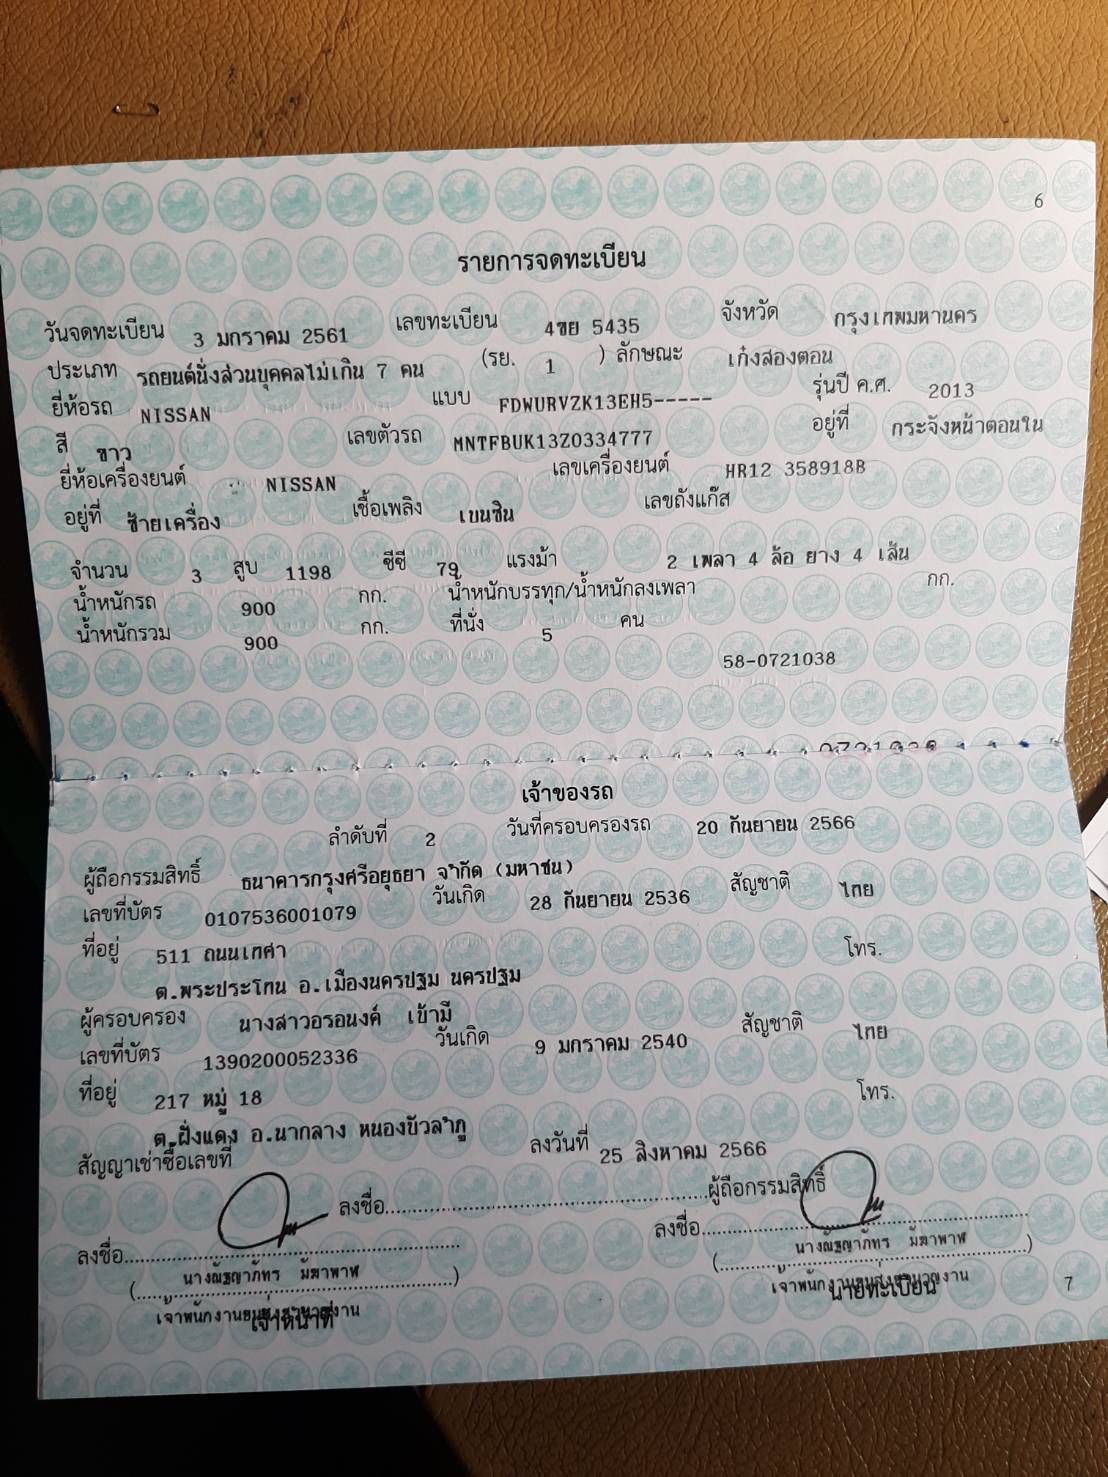 6
รายการจดทะเบียน
วันจดทะเบียน 3 มกราคม 2561 เลขทะเบียน 4ขย 5435 จังหวัด กรุงเทพมหานคร
ประเภท รถยนต์นั่งส่วนบุคคลไม่เกิน 7 คน (รย. 1 ) ลักษณะ เก๋งสองตอน
ยี่ห้อรถ NISSAN แบบ FDWURVZK13EH5----- รุ่นปี ค.ศ. 2013
สี ขาว เลขตัวรถ MNTFBUK13Z0334777 อยู่ที่ กระจังหน้าตอนใน
ยี่ห้อเครื่องยนต์ NISSAN เลขเครื่องยนต์ HR12 358918B
อยู่ที่ ซ้ายเครื่อง เชื้อเพลิง เบนซิน เลขถังแก๊ส
จำนวน 3 สูบ 1198 ซีซี 79 แรงม้า 2 เพลา 4 ล้อ ยาง 4 เส้น
น้ำหนักรถ 900 กก. น้ำหนักบรรทุก/น้ำหนักลงเพลา กก.
น้ำหนักรวม 900 กก. ที่นั่ง 5 คน
58-0721038
เจ้าของรถ
ลำดับที่ 2 วันที่ครอบครองรถ 20 กันยายน 2566
ผู้ถือกรรมสิทธิ์ ธนาคารกรุงศรีอยุธยา จำกัด (มหาชน)
เลขที่บัตร 0107536001079 วันเกิด 28 กันยายน 2536 สัญชาติ ไทย
ที่อยู่ 511 ถนนเทศา โทร.
ต.พระประโทน อ.เมืองนครปฐม นครปฐม
ผู้ครอบครอง นางสาวอรอนงค์ เข้ามี
เลขที่บัตร 1390200052336 วันเกิด 9 มกราคม 2540 สัญชาติ ไทย
ที่อยู่ 217 หมู่ 18 โทร.
ต.ฝั่งแดง อ.นากลาง หนองบัวลำภู
สัญญาเช่าซื้อเลขที่ ลงวันที่ 25 สิงหาคม 2566
ลงชื่อ..........ผู้ถือกรรมสิทธิ์
ลงชื่อ.......... ลงชื่อ..........
(..........) (..........)
เจ้าหน้าที่ นายทะเบียน
7